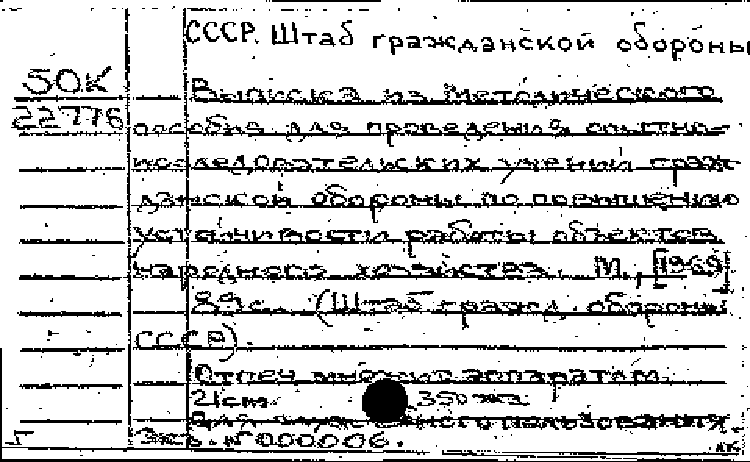 СССР. Штаб гражданской обороны
50К
Выписка из Методического
22776
пособия для проведения опытно-
исследовательских учений граж-
данской обороны по повышению
устойчивости работы объектов
народного хозяйства. М., [1969].
89 с. (Штаб гражд. обороны
СССР).
Отпеч. множит. аппаратом.
21 см. 350 экз.
Для служебного пользования.
Экз. № 000006.